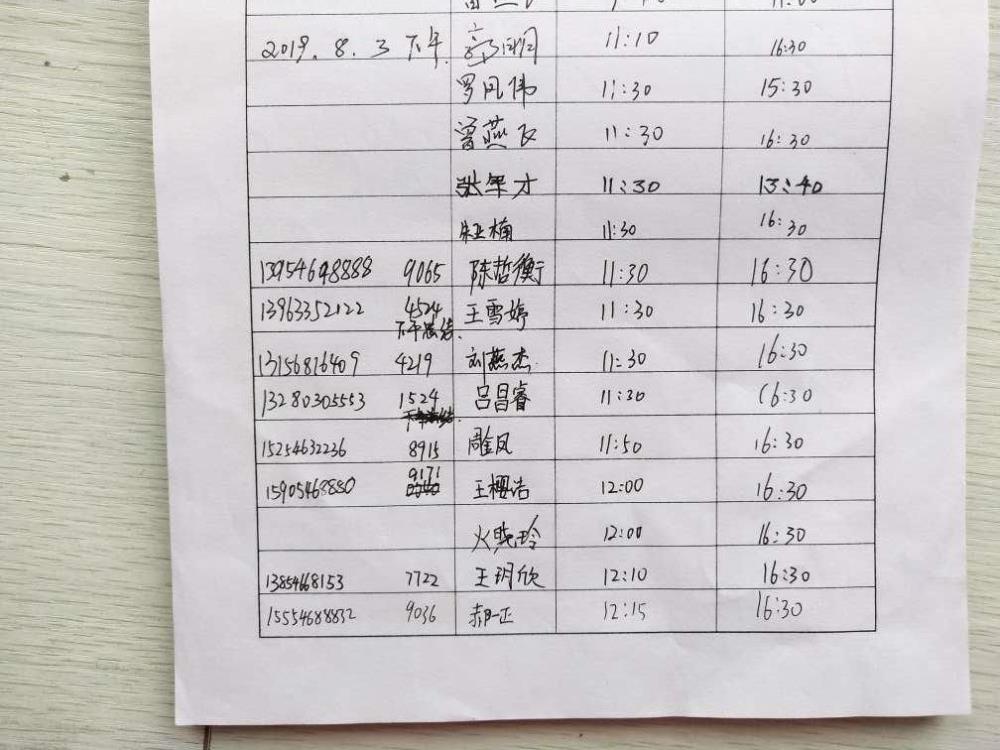 2019.8.3 下午 11:10 16:30
罗凤伟 11:30 15:30
曾燕飞 11:30 16:30
张军才 11:30 13:40
朱亚楠 11:30 16:30
13954698888 9065 陈哲衡 11:30 16:30
13963352122 4524 王雪婷 11:30 16:30
下午总结.
13156816409 4219 刘燕杰 11:30 16:30
13280305553 1524 吕昌睿 11:30 16:30
15254632236 8915 11:50 16:30
9171
15905468880 王樱洁 12:00 16:30
12:00 16:30
13854668153 7722 王玥欣 12:10 16:30
15554688832 9036 郝一正 12:15 16:30